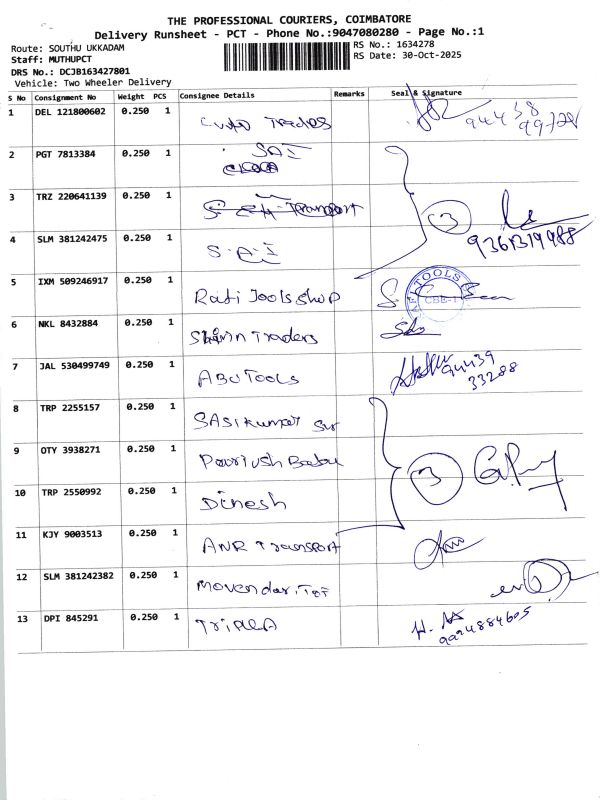 THE PROFESSIONAL COURIERS, COIMBATORE
Delivery Runsheet - PCT - Phone No.:9047080280 - Page No.:1
Route: SOUTHU UKKADAM
RS No.: 1634278
Staff: MUTHUPCT
RS Date: 30-Oct-2025
DRS No.: DCJB163427801
Vehicle: Two Wheeler Delivery
S No Consignment No Weight PCS Consignee Details Remarks Seal & Signature
1 DEL 121800602 0.250 1 Traders 94438
99728
2 PGT 7813384 0.250 1 SAI
3 TRZ 220641139 0.250 1 Transport 3
9361319988
4 SLM 381242475 0.250 1 S.A.I
5 IXM 509246917 0.250 1 Rafi Tools shop TOOLS CBE-1
6 NKL 8432884 0.250 1 Traders
7 JAL 530499749 0.250 1 ABU Tools 94439
33288
8 TRP 2255157 0.250 1 SASikumar Sur
9 OTY 3938271 0.250 1 Babu 3
10 TRP 2550992 0.250 1 Dinesh
11 KJY 9003513 0.250 1 ANR Transport
12 SLM 381242382 0.250 1
13 DPI 845291 0.250 1 9994884605